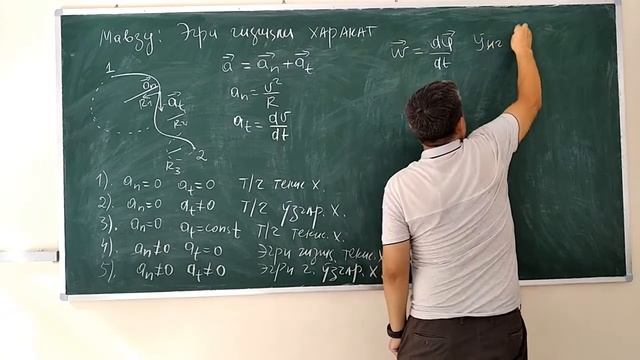 Мавзу: Эгри чизиқли ҳаракат
1
a⃗ = a⃗n + a⃗t
w⃗ = dφ⃗/dt Ўнг
an = v²/R
at = dv/dt
a⃗n
R1
a⃗t
R2
R3
2
1). an=0 at=0 Т/ч текис х.
2). an=0 at≠0 Т/ч ўзгар. х.
3). an=0 at=const Т/ч текис. х.
4). an≠0 at=0 Эгри чизиқ. текис. х
5). an≠0 at≠0 Эгри ч. ўзгар. х